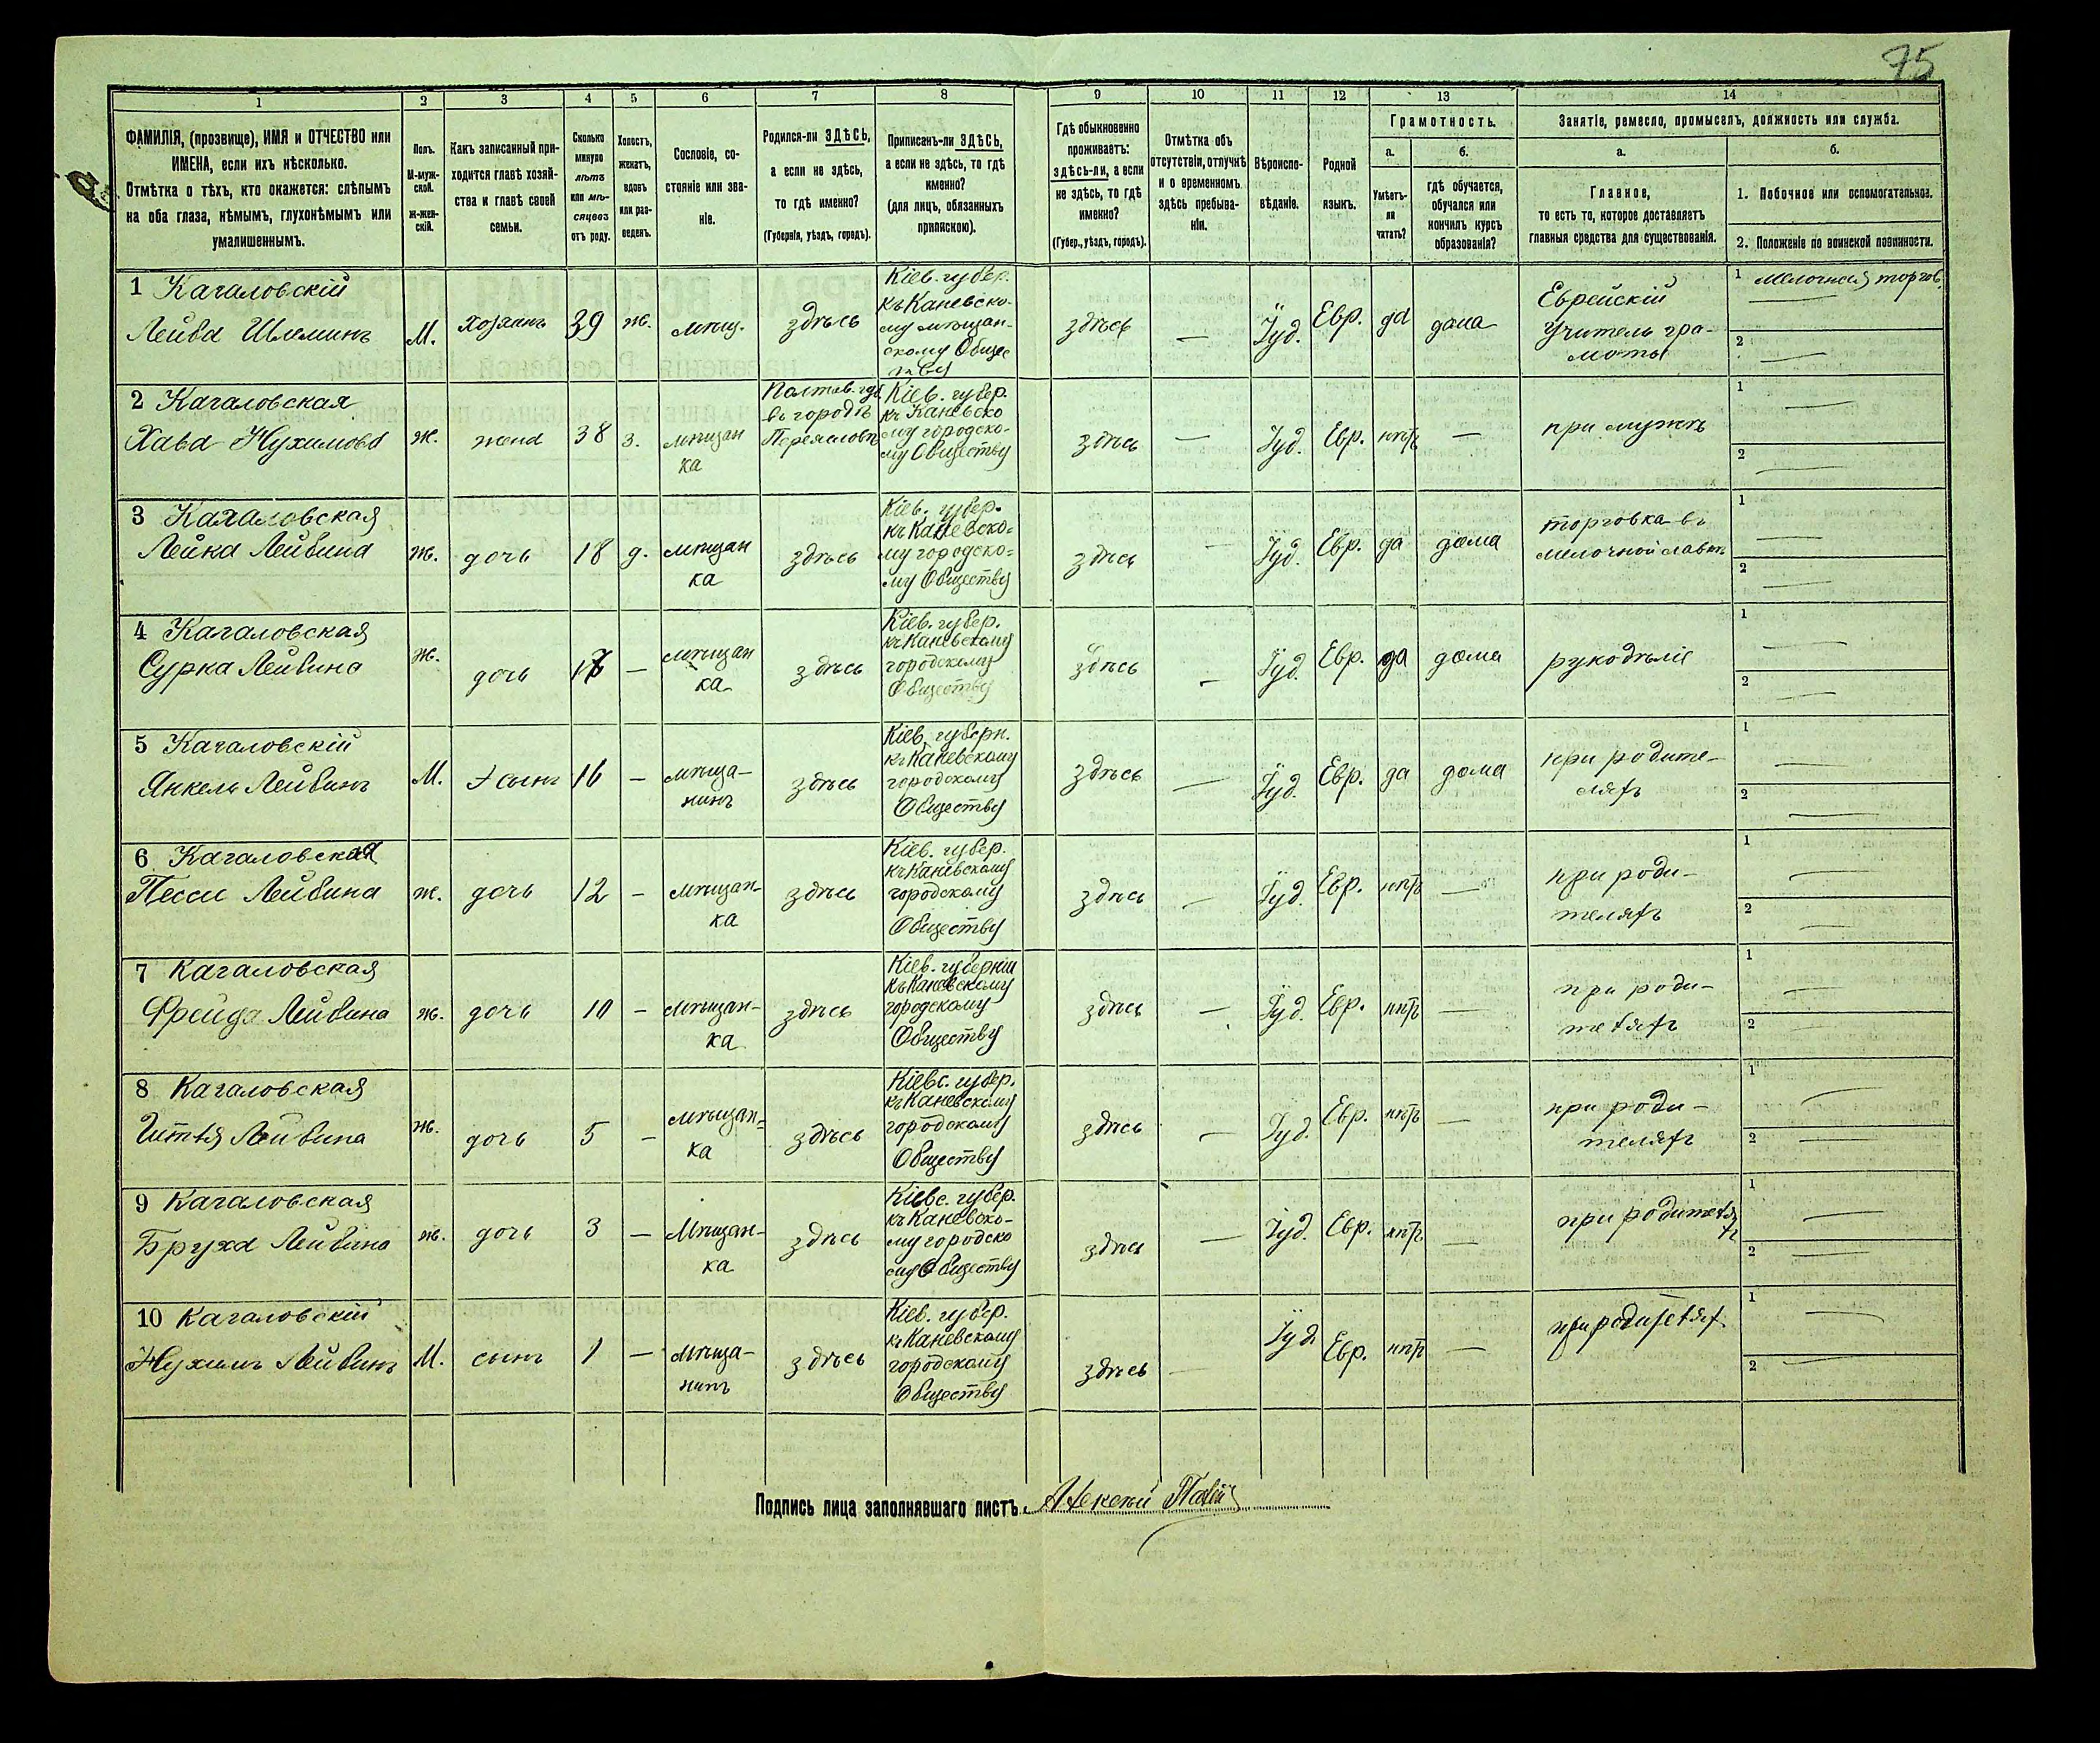 75
1
2
3
4
5
6
7
8
9
10
11
12
13
14
ФАМИЛІЯ, (прозвище), ИМЯ и ОТЧЕСТВО или
ИМЕНА, если ихъ нѣсколько.
Отмѣтка о тѣхъ, кто окажется: слѣпымъ
на оба глаза, нѣмымъ, глухонѣмымъ или
умалишеннымъ.
Полъ.
М-муж-
ской.
Ж-жен-
скій.
Какъ записанный при-
ходится главѣ хозяй-
ства и главѣ своей
семьи.
Сколько
минуло
лѣтъ
или мѣ-
сяцевъ
отъ роду.
Холостъ,
женатъ,
вдовъ
или раз-
веденъ.
Сословіе, со-
стояніе или зва-
ніе.
Родился-ли ЗДѢСЬ,
а если не здѣсь,
то гдѣ именно?
(Губернія, уѣздъ, городъ).
Приписанъ-ли ЗДѢСЬ,
а если не здѣсь, то гдѣ
именно?
(для лицъ, обязанныхъ
припискою).
Гдѣ обыкновенно
проживаетъ:
здѣсь-ли, а если
не здѣсь, то гдѣ
именно?
(Губер., уѣздъ, городъ).
Отмѣтка объ
отсутствіи, отлучкѣ
и о временномъ
здѣсь пребыва-
ніи.
Вѣроиспо-
вѣданіе.
Родной
языкъ.
Грамотность.
а.
Умѣетъ-
ли
читать?
б.
гдѣ обучается,
обучался или
кончилъ курсъ
образованія?
Занятіе, ремесло, промыселъ, должность или служба.
а.
Главное,
то есть то, которое доставляетъ
главныя средства для существованія.
б.
1. Побочное или вспомогательное.
2. Положеніе по воинской повинности.
1 Кагаловскій
Лейба Шлеминъ
М.
хозяинъ
39
ж.
мѣщ.
здѣсь
Кіев. губер.
къ Каневско-
му мѣщан-
скому Общес
тву
здѣсь
—
Іуд.
Евр.
да
дома
Еврейскій
учитель гра-
моты
1 Мелочная торгов.
2 —
2 Кагаловская
Хава Нухимова
ж.
жена
38
з.
мѣщан
ка
Полтав. губ
въ городѣ
Переяславѣ
Кіев. губер.
къ Каневско
му городско-
му Обществу
здѣсь
—
Іуд.
Евр.
нѣтъ
—
при мужѣ
1 —
2 —
3 Кагаловская
Лейка Лейбина
ж.
дочь
18
д.
мѣщан
ка
здѣсь
Кіев. губер.
къ Каневско-
му городско-
му Обществу
здѣсь
—
Іуд.
Евр.
да
дома
торговка въ
мелочной лавкѣ
1 —
2 —
4 Кагаловская
Сурка Лейбина
ж.
дочь
17
—
мѣщан
ка
здѣсь
Кіев. губер.
къ Каневскому
городскому
Обществу
здѣсь
—
Іуд.
Евр.
да
дома
рукодѣліе
1 —
2 —
5 Кагаловскій
Янкель Лейбинъ
М.
сынъ
16
—
мѣща-
нинъ
здѣсь
Кіев. губерн.
къ Каневскому
городскому
Обществу
здѣсь
—
Іуд.
Евр.
да
дома
при родите-
ляхъ
1 —
2 —
6 Кагаловская
Песси Лейбина
ж.
дочь
12
—
мѣщан-
ка
здѣсь
Кіев. губер.
къ Каневскому
городскому
Обществу
здѣсь
—
Іуд.
Евр.
нѣтъ
—
при роди-
теляхъ
1 —
2 —
7 Кагаловская
Фрейда Лейбина
ж.
дочь
10
—
мѣщан-
ка
здѣсь
Кіев. губерніи
къ Каневскому
городскому
Обществу
здѣсь
—
Іуд.
Евр.
нѣтъ
—
при роди-
теляхъ
1 —
2 —
8 Кагаловская
Лейбина
ж.
дочь
5
—
мѣщан-
ка
здѣсь
Кіевс. губер.
къ Каневскому
городскому
Обществу
здѣсь
—
Іуд.
Евр.
нѣтъ
—
при роди-
теляхъ
1 —
2 —
9 Кагаловская
Бруха Лейбина
ж.
дочь
3
—
Мѣщан-
ка
здѣсь
Кіевс. губер.
къ Каневско-
му городско
му Обществу
здѣсь
—
Іуд.
Евр.
нѣтъ
—
при родителях
ъ
1 —
2 —
10 Кагаловскій
Нухимъ Лейбинъ
М.
сынъ
1
—
мѣща-
нинъ
здѣсь
Кіев. губер.
къ Каневскому
городскому
Обществу
здѣсь
—
Іуд
Евр.
нѣтъ
—
при родителях
1 —
2 —
Подпись лица заполнявшаго листъ.